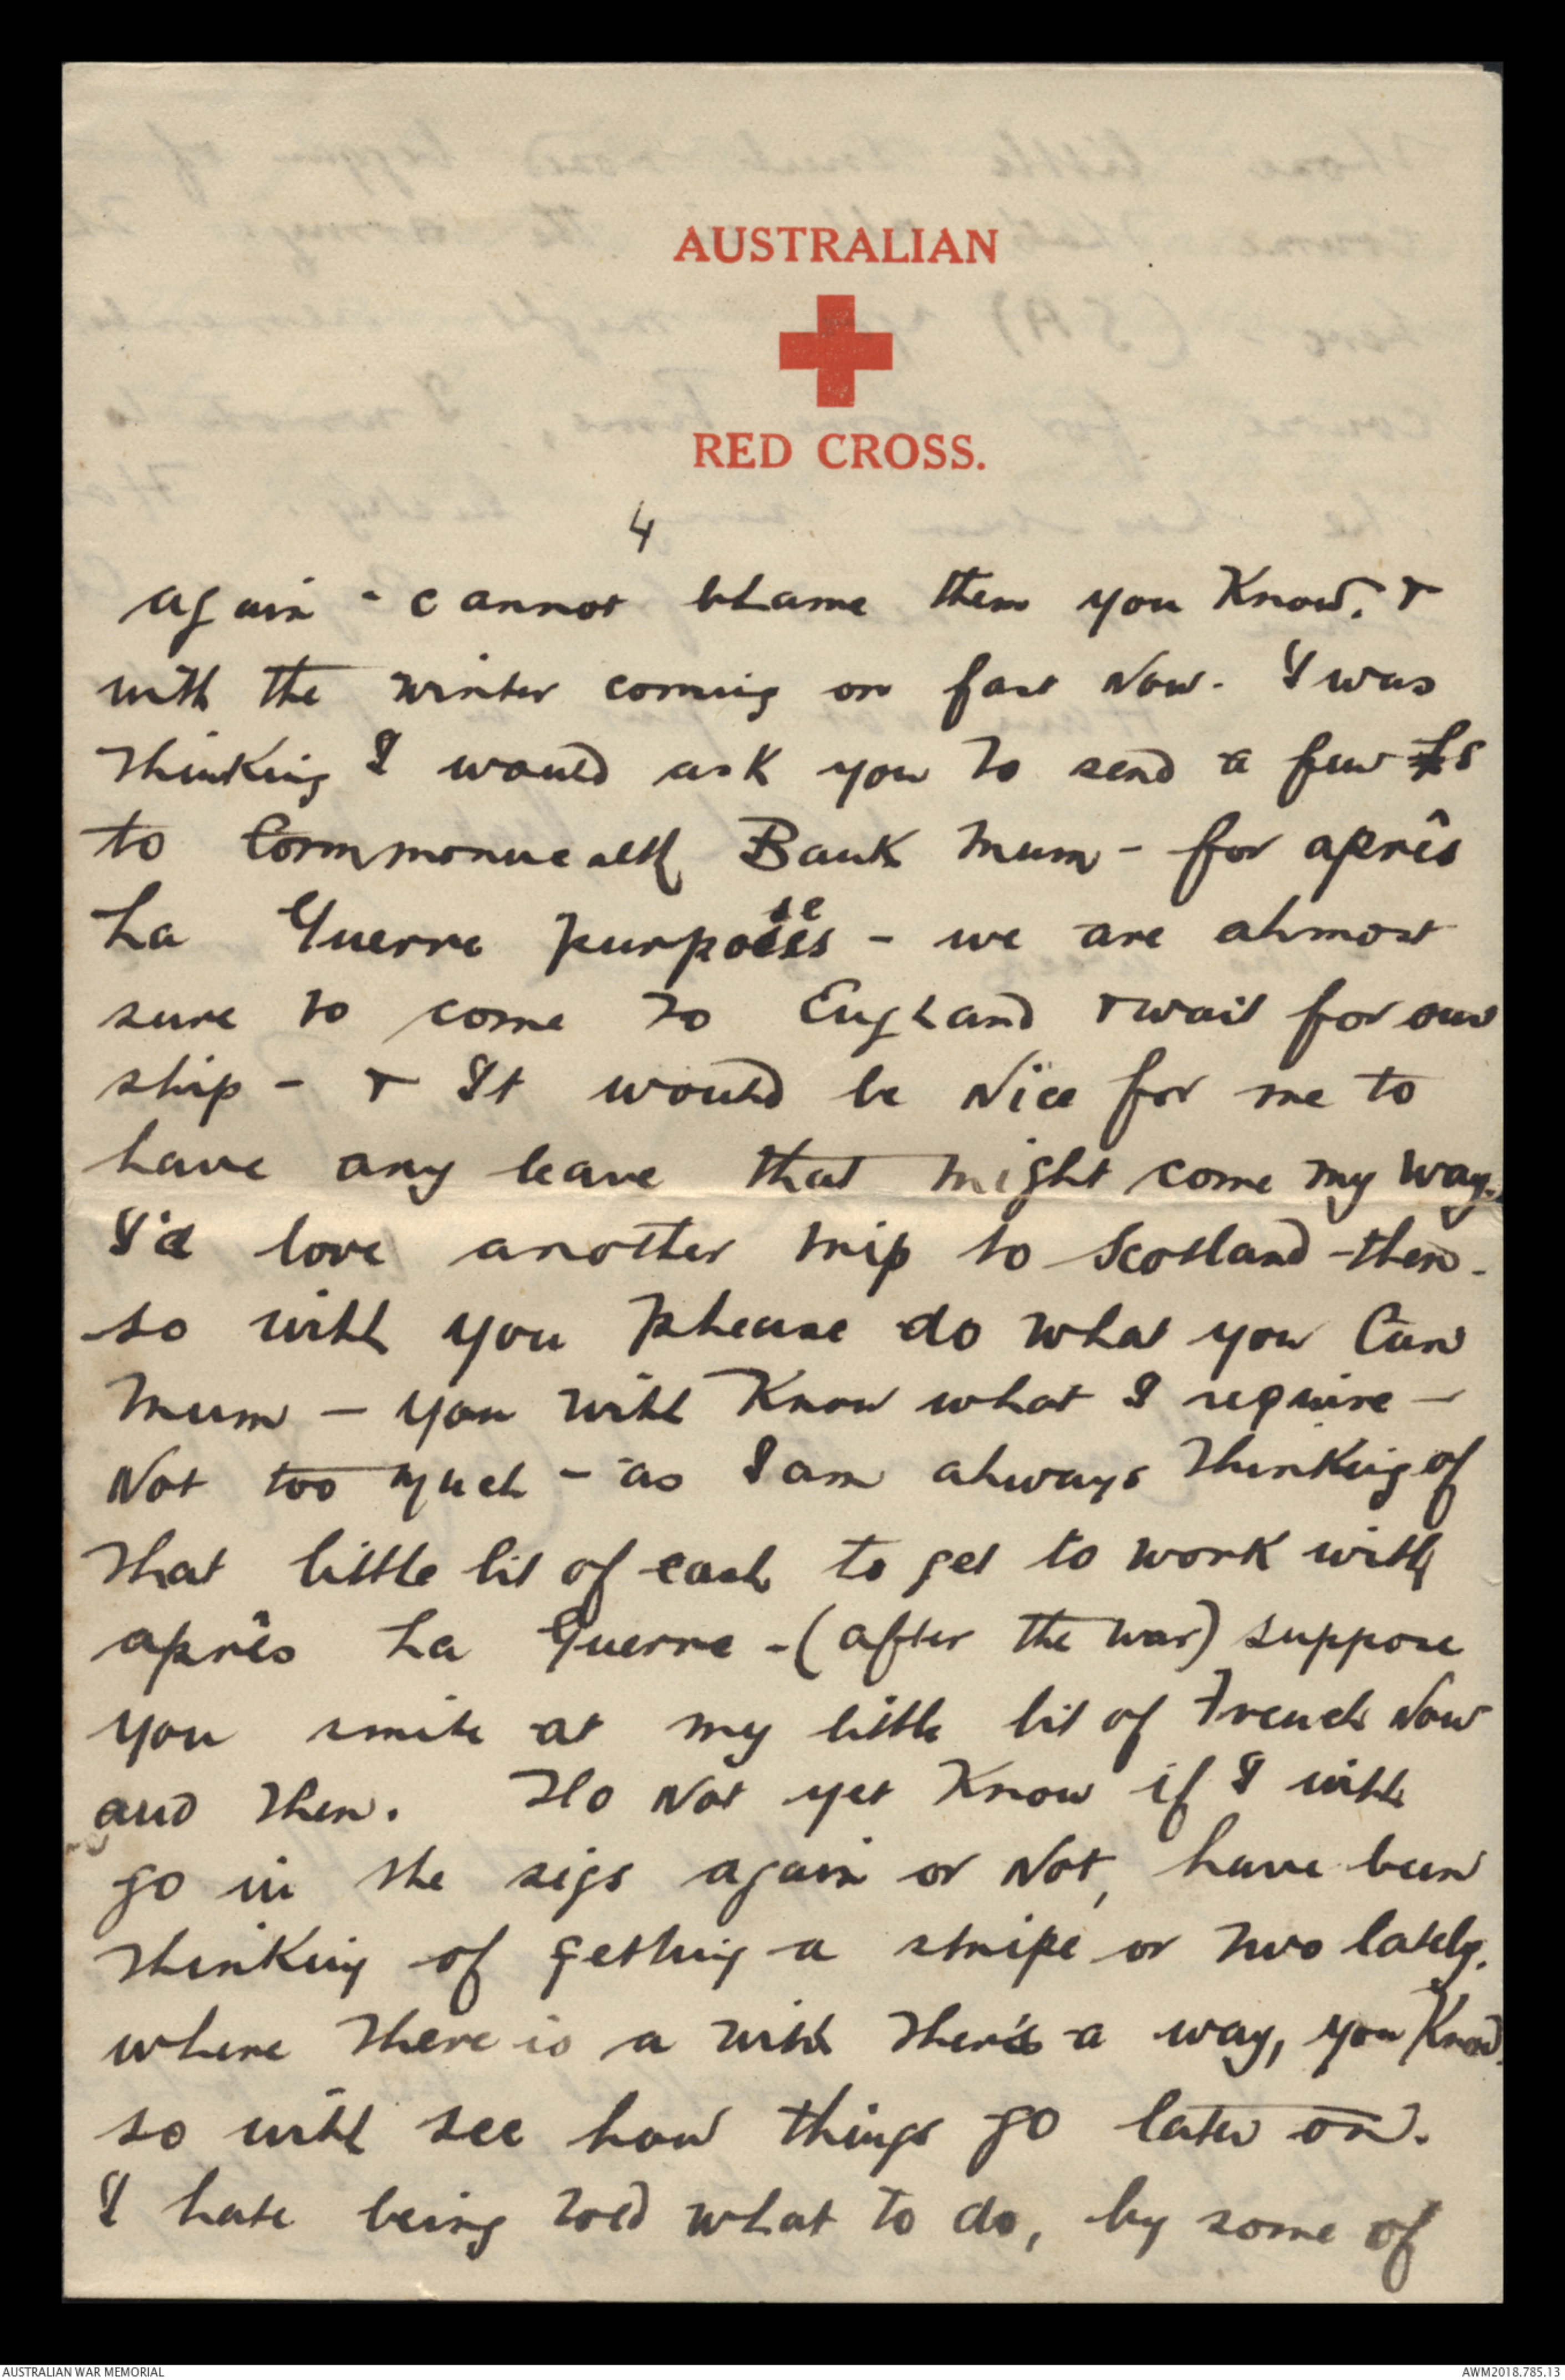 AUSTRALIAN
RED CROSS.
4
again - cannot blame them you Know. &
with the winter coming on fast Now. I was
thinking I would ask you to send a few £s
to Commonwealth Bank Mum - for après
La Guerre purposes - we are almost
sure to come to England & wait for our
ship - & It would be Nice for me to
have any leave that might come my way.
I'd love another trip to Scotland - then.
so will you please do what you Can
Mum - you will Know what I require -
Not too much - as I am always thinking of
that little bit of cash to get to work with
après La Guerre - (after the war) suppose
you smile at my little bit of French Now
and then. Do Not yet Know if I will
go in the sigs again or Not, have been
thinking of getting a stripe or two lately.
where there is a will there's a way, you Know.
so will see how things go later on.
I hate being told what to do, by some of
AUSTRALIAN WAR MEMORIAL
AWM2018.785.13